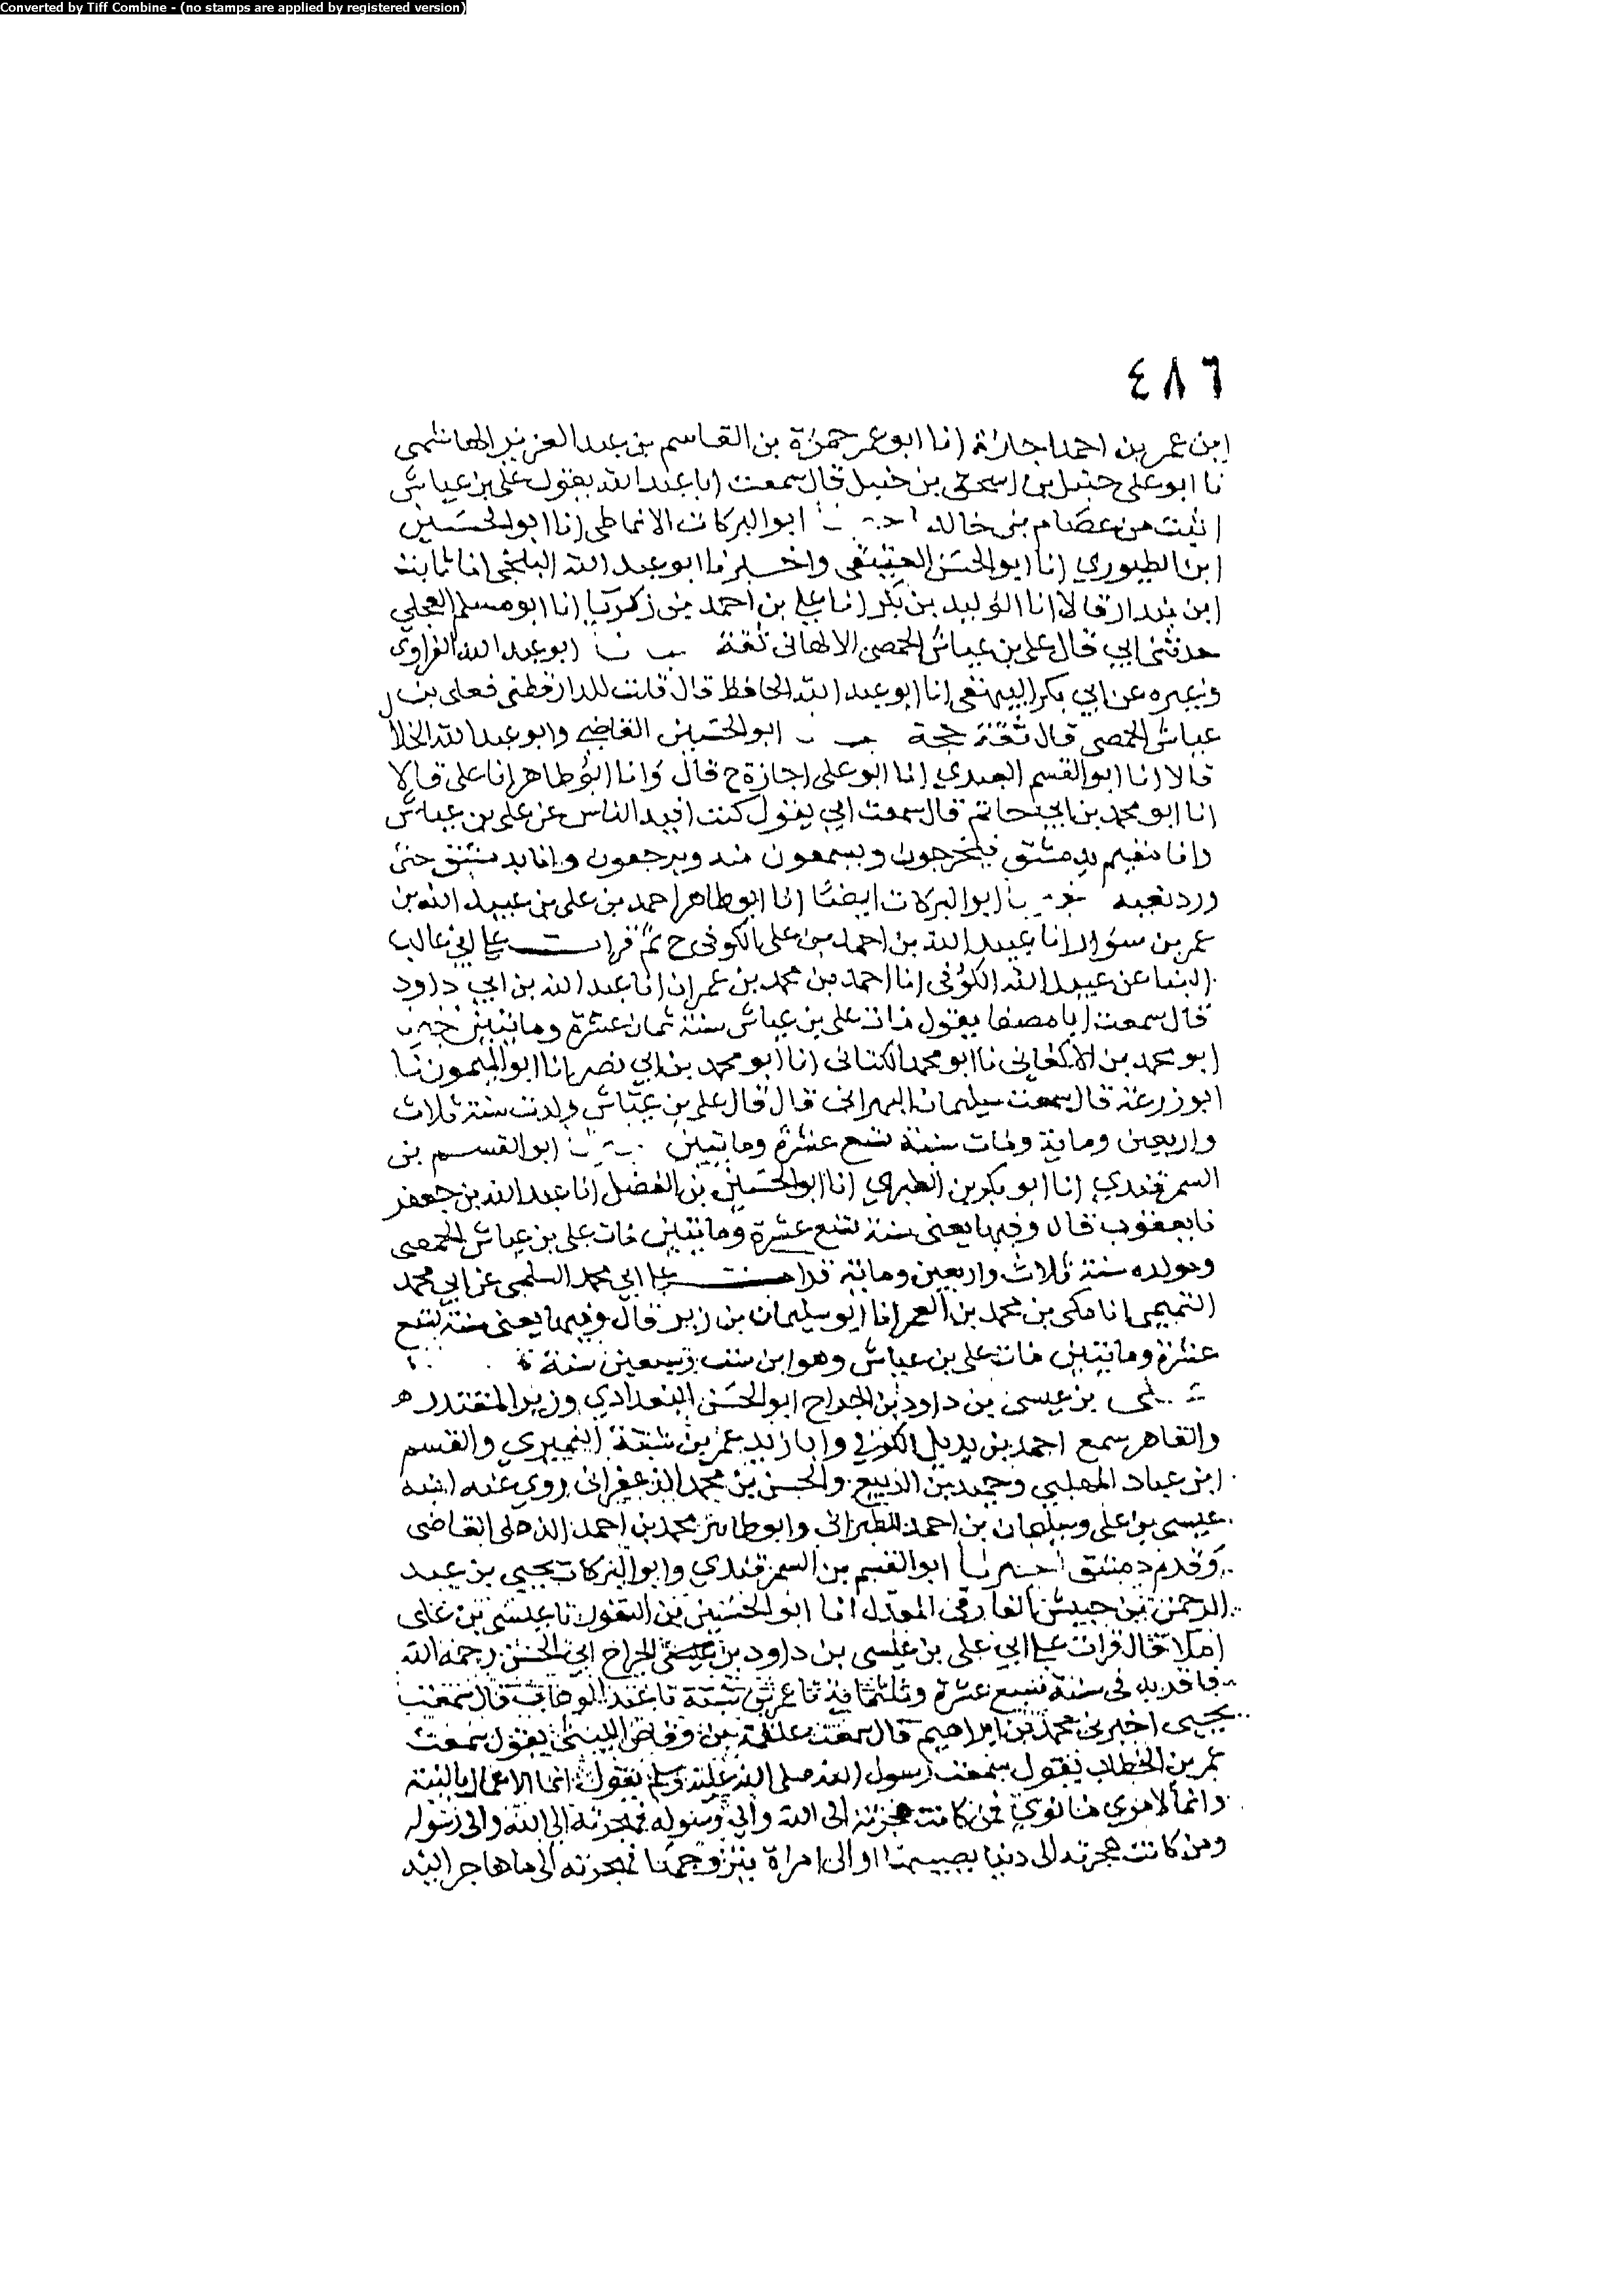 Converted by Tiff Combine - (no stamps are applied by registered version)
٤٨٦
ابن عمر بن احمد اجازة انا ابو عمر حمزة بن القاسم بن عبد العزيز الهاشمى
نا ابو على حنبل بن اسحق بن حنبل قال سمعت ابا عبد الله يقول على بن عياش
اثبت من عصام بن خالد ابو البركات الانماطى انا ابو الحسين
ابن الطيوري انا ابو الحسن العتيقى واخبرنا ابو عبد الله البلخى انا ثابت
ابن بندار قالا انا الوليد بن بكر انا على بن احمد بن زكريا انا ابو مسلم العجلي
حدثنى ابي قال على بن عياش الحمصى الالهانى ثقة ابو عبد الله الفراوى
وغيره عن ابي بكر البيهقى انا ابو عبد الله الحافظ قال قلت للدارقطنى فعلى بن
عياش الحمصى قال ثقة حجة ابو الحسين القاضي وابو عبد الله الخلال
قالا انا ابو القسم العبدي انا ابو على اجازة ح قال وانا ابو طاهر انا على قالا
انا ابو محمد بن ابي حاتم قال سمعت ابي يقول كنت افيد الناس عن على بن عياش
وانا مقيم بدمشق فيخرجون ويسمعون منه ويرجعون وانا بدمشق حتى
ورد نعيه ابو البركات ايضا انا ابو طاهر احمد بن على بن عبيد الله بن
عمر بن سوار انا عبيد الله بن احمد بن على الكوفى ح ثم قرات على ابي غالب
البنا عن عبيد الله الكوفى انا احمد بن محمد بن عمران انا عبد الله بن ابي داود
قال سمعت ابا مصفا يقول مات على بن عياش سنة ثمان عشرة ومايتين
ابو محمد بن الاكفانى نا ابو محمد الكتانى انا ابو محمد بن ابي نصر انا ابو الميمون نا
ابو زرعة قال سمعت سليمان البهرانى قال قال على بن عياش ولدت سنة ثلاث
واربعين وماية ومات سنة تسع عشرة ومايتين ابو القسم بن
السمرقندي انا ابو بكر بن الطبري انا ابو الحسين بن الفضل انا عبد الله بن جعفر
نا يعقوب قال وفيها يعنى سنة تسع عشرة ومايتين مات على بن عياش الحمصى
ومولده سنة ثلاث واربعين وماية قرات على ابي محمد السلمى عن ابي محمد
التميمى انا مكى بن محمد بن الغمر انا ابو سليمان بن زبر قال وفيها يعنى سنة تسع
عشرة ومايتين مات على بن عياش وهو ابن ست وسبعين سنة
على بن عيسى بن داود بن الجراح ابو الحسن البغدادي وزير المقتدر
والقاهر سمع احمد بن بديل الكوفي وابا زيد عمر بن شبة النميري والقسم
ابن عباد المهلبى وحميد بن الربيع والحسن بن محمد الزعفرانى روي عنه ابنه
عيسى بن على وسليمان بن احمد الطبرانى وابو طاهر محمد بن احمد الذهلى القاضى
وقدم دمشق اخبرنا ابو القسم بن السمرقندي وابو البركات يحيي بن عبد
الرحمن بن حبيش الفارقى المعدل انا ابو الحسين بن النقور نا عيسى بن على
املا قال قرات على ابي على بن عيسى بن داود بن عيسى الجراح ابي الحسن رحمه الله
فاقر به فى سنة تسع عشرة وثلثماية نا عمر بن شبة نا عبد الوهاب قال سمعت
يحيى اخبرنى محمد بن ابراهيم قال سمعت علقمة بن وقاص الليثى يقول سمعت
عمر بن الخطاب يقول سمعت رسول الله صلى الله عليه وسلم يقول انما الاعمال بالنية
وانما لامري ما نوي فمن كانت هجرته الى الله والى رسوله فهجرته الى الله والى رسوله
ومن كانت هجرته الى دنيا يصيبها او الى امراة يتزوجها فهجرته الى ما هاجر اليه